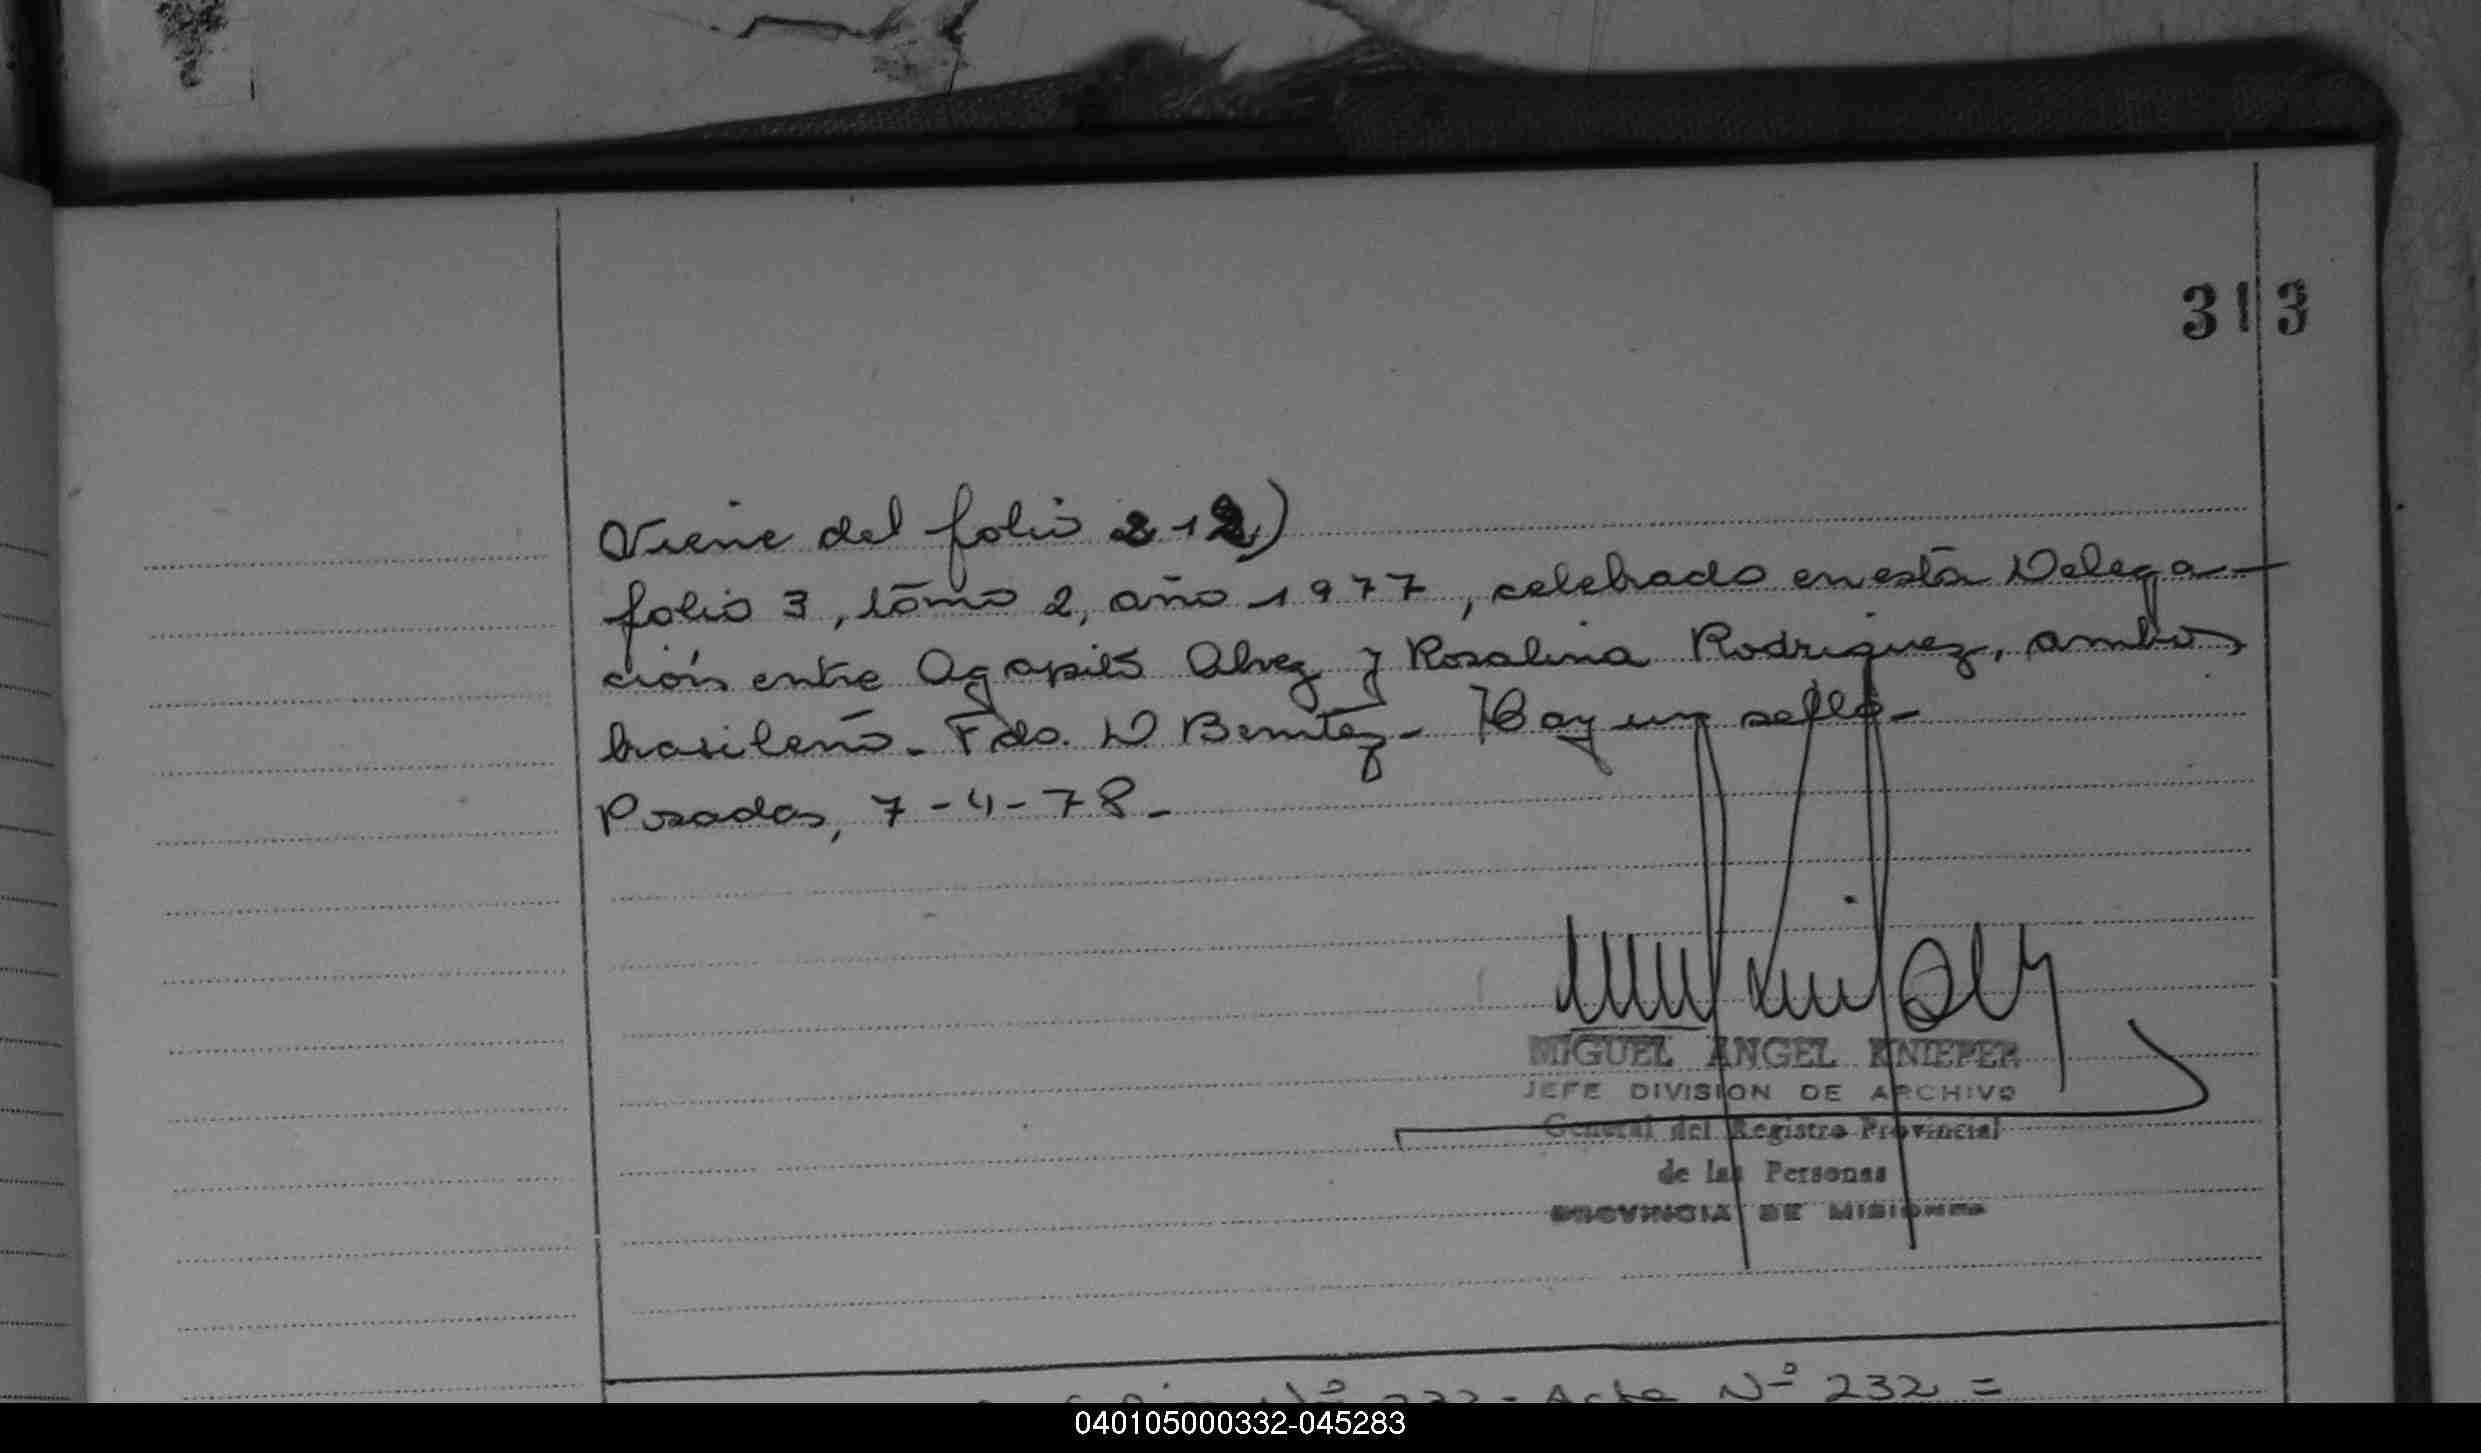 313
Viene del folio 212)
folio 3, tomo 2, año 1977, celebrado en esta Delega-
ción entre Agapito Alvez y Rosalina Rodriguez, ambos
brasileño. Fdo. D Benitez- Hay un sello-
Posadas, 7-4-78-
MIGUEL ANGEL KNIEPER
JEFE DIVISION DE ARCHIVO
General del Registro Provincial
de las Personas
PROVINCIA DE MISIONES
Nº 232 - Acta Nº 232 =
040105000332-045283